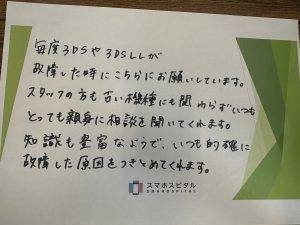 毎度3DSや3DSLLが
故障した時にこちらにお願いしています。
スタッフの方も古い機種にも関わらずいつも
とっても親身に相談を聞いてくれます。
知識も豊富なようで、いつも的確に
故障した原因をつきとめてくれます。
スマホスピタル
SMAHOSPITAL